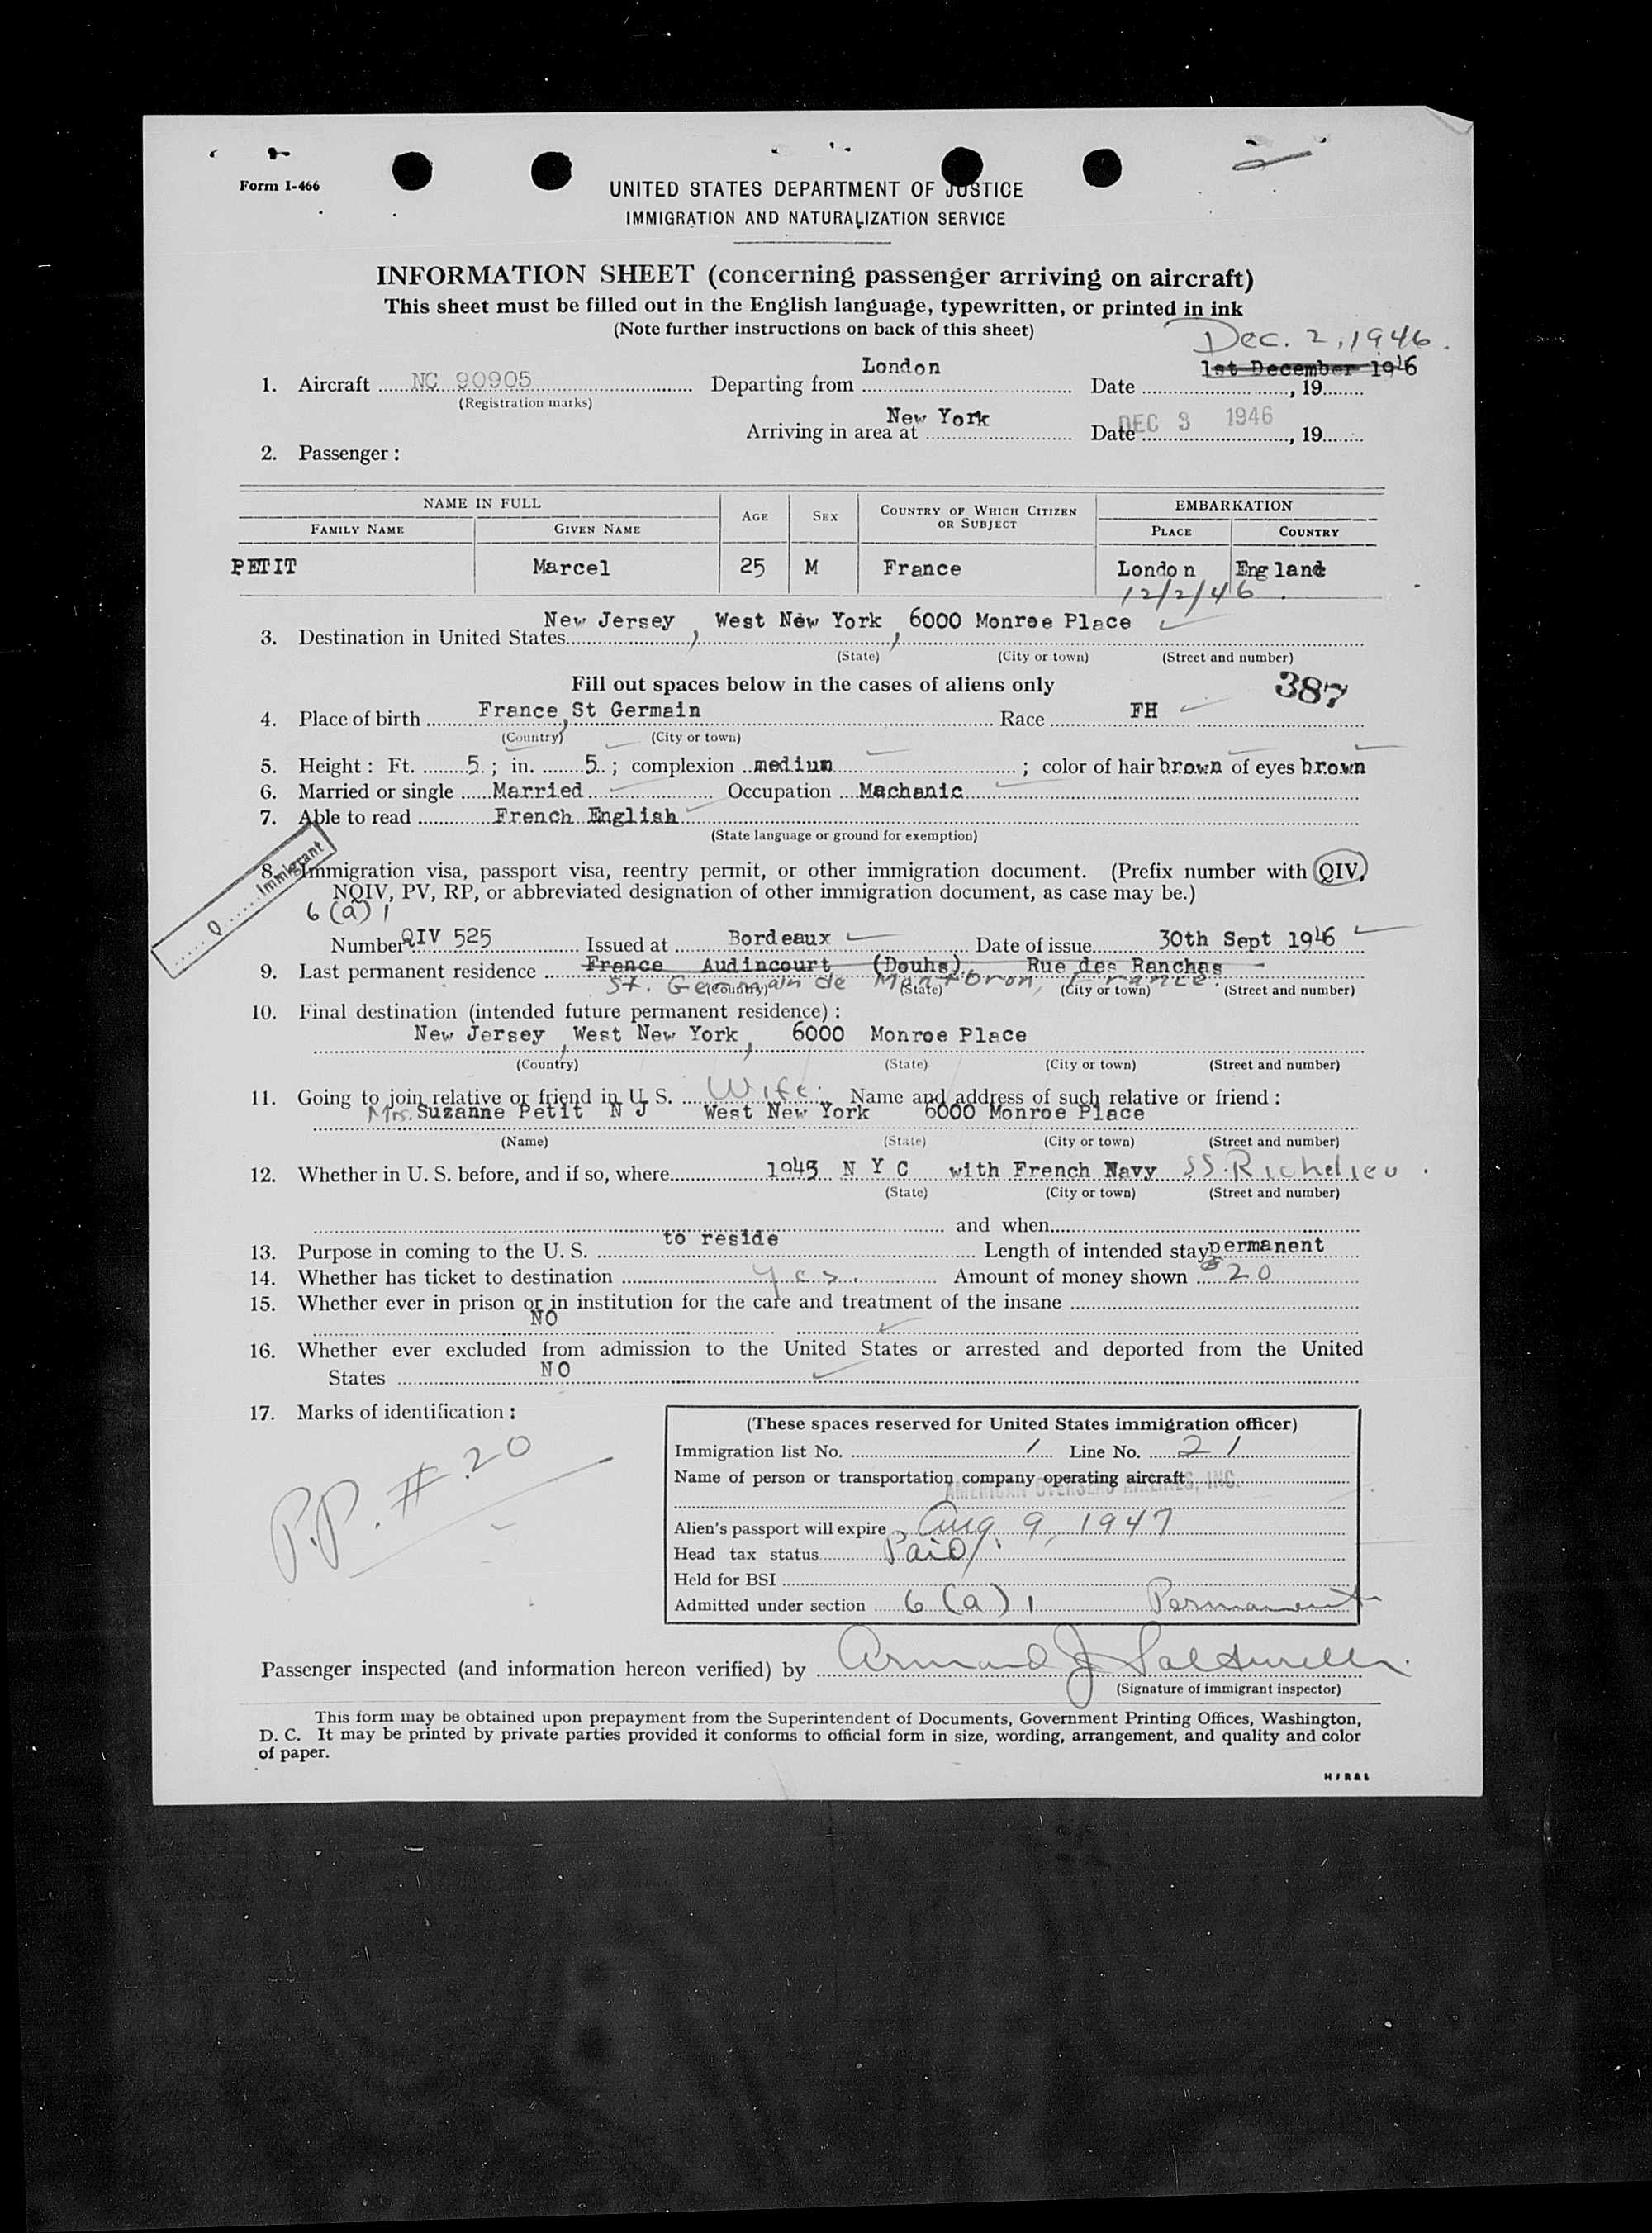 Form I-466
UNITED STATES DEPARTMENT OF JUSTICE
IMMIGRATION AND NATURALIZATION SERVICE
INFORMATION SHEET (concerning passenger arriving on aircraft)
This sheet must be filled out in the English language, typewritten, or printed in ink
(Note further instructions on back of this sheet)
Dec. 2, 1946.
1. Aircraft NC 90905 Departing from London Date 1st December 1946, 19
(Registration marks)
Arriving in area at New York Date DEC 3 1946, 19
2. Passenger:
NAME IN FULL
EMBARKATION
FAMILY NAME GIVEN NAME AGE SEX COUNTRY OF WHICH CITIZEN OR SUBJECT PLACE COUNTRY
PETIT Marcel 25 M France London England
12/2/46.
3. Destination in United States New Jersey, West New York, 6000 Monroe Place
(State) (City or town) (Street and number)
Fill out spaces below in the cases of aliens only
387
4. Place of birth France, St Germain Race FH
(Country) (City or town)
5. Height: Ft. 5; in. 5; complexion medium; color of hair brown of eyes brown
6. Married or single Married Occupation Machanic
7. Able to read French English
(State language or ground for exemption)
Q Immigrant
8. Immigration visa, passport visa, reentry permit, or other immigration document. (Prefix number with QIV,
NQIV, PV, RP, or abbreviated designation of other immigration document, as case may be.)
6 (a) 1
Number QIV 525 Issued at Bordeaux Date of issue 30th Sept 1946
9. Last permanent residence France Audincourt (Douhs) Rue des Ranchas
St. Germain de Montbron, France.
(Country) (State) (City or town) (Street and number)
10. Final destination (intended future permanent residence):
New Jersey, West New York, 6000 Monroe Place
(Country) (State) (City or town) (Street and number)
11. Going to join relative or friend in U. S. Wife. Name and address of such relative or friend:
Mrs. Suzanne Petit N J West New York 6000 Monroe Place
(Name) (State) (City or town) (Street and number)
12. Whether in U. S. before, and if so, where 1943 N Y C with French Navy SS. Richelieu
(State) (City or town) (Street and number)
and when
13. Purpose in coming to the U. S. to reside Length of intended stay permanent
14. Whether has ticket to destination yes. Amount of money shown $20
15. Whether ever in prison or in institution for the care and treatment of the insane
NO
16. Whether ever excluded from admission to the United States or arrested and deported from the United
States NO
17. Marks of identification:
P.P. # 20
(These spaces reserved for United States immigration officer)
Immigration list No. 1 Line No. 21
Name of person or transportation company operating aircraft
AMERICAN OVERSEAS AIRLINES, INC.
Alien's passport will expire Aug 9, 1947
Head tax status Paid
Held for BSI
Admitted under section 6 (a) 1 Permanent
Passenger inspected (and information hereon verified) by Armand J
(Signature of immigrant inspector)
This form may be obtained upon prepayment from the Superintendent of Documents, Government Printing Offices, Washington,
D. C. It may be printed by private parties provided it conforms to official form in size, wording, arrangement, and quality and color
of paper.